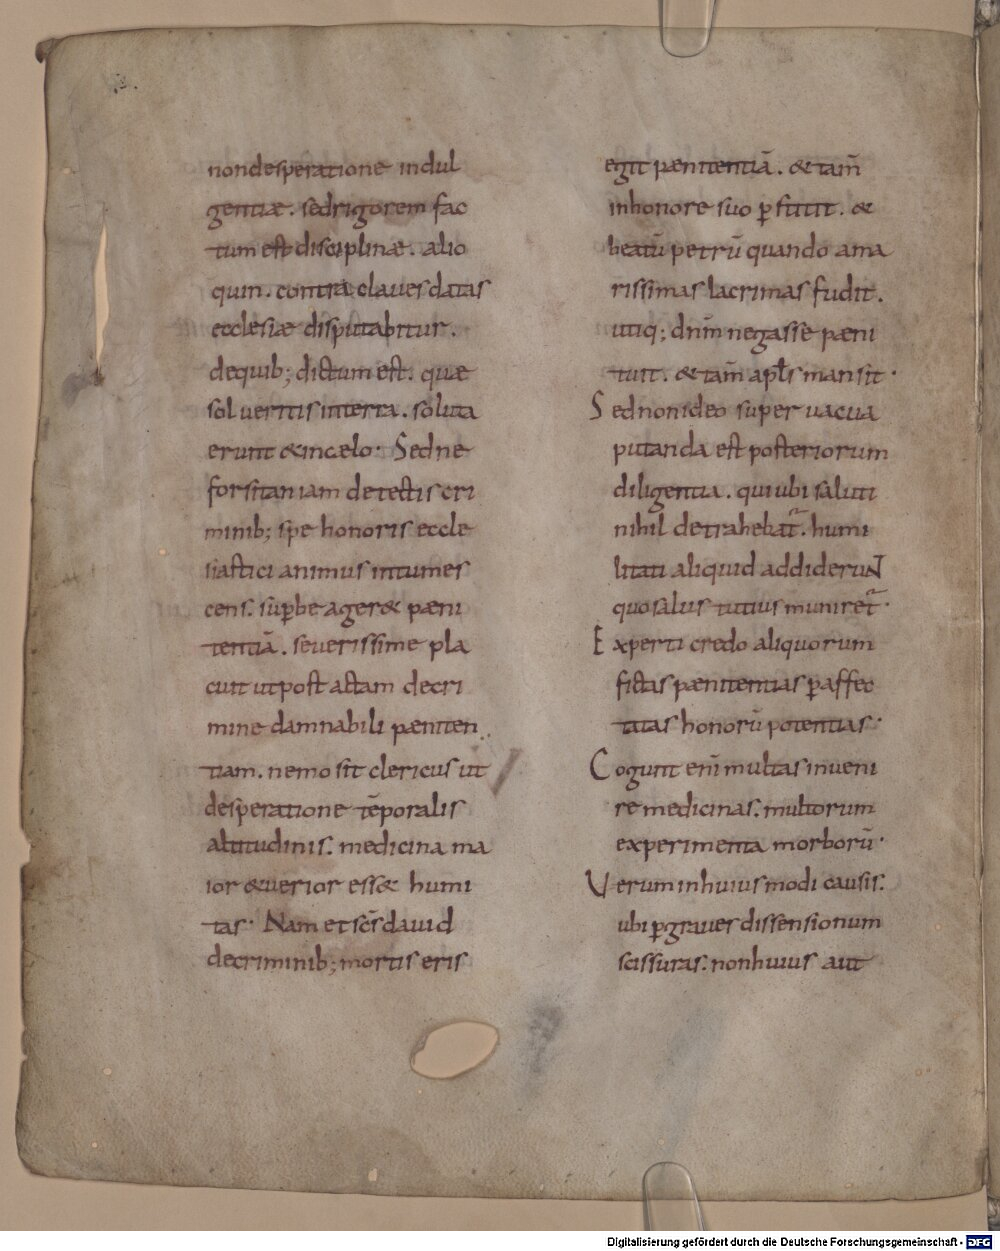 nondesperatione indul
gentiæ. sedrigorem fac
tum est disciplinæ. alio
quin. contra claues datas
ecclesiæ disputabitur.
dequib; dictum est. quæ
solueritis interra. soluta
erunt & incælo. Sed ne
forsitan iam detectis cri
minib; spe honoris eccle
siastici animus intumes
cens. sup̄be ager& pæni
tentiā. seuerissime pla
cuit ut post actam decri
mine damnabili pæniten
tiam. nemo sit clericus ut
desperatione tēporalis
altitudinis. medicina ma
ior & uerior ess& humi
tas. Nam et scs̄ dauid
decriminib; mortis eris
egit pænitentiā. & tam̄
inhonore suo p̄stitit. &
beatū petrū quando ama
rissimas lacrimas fudit.
utiq; dnm̄ negasse pæni
tuit. & tam̄ apl̄s mansit.
Sed nonideo super uacua
putanda est posteriorum
diligentia. qui ubi saluti
nihil detrahebat̄. humi
litati aliquid addiderunt
quo salus tutius muniret̄.
Experti credo aliquorum
fictas pænitentias p̄ affec
tatas honorū potentias.
Cogunt enī multas inueni
re medicinas. multorum
experimenta morborū.
Uerum inhuiusmodi causis.
ubi p̄graues dissensionum
scissuras. non huius aut
Digitalisierung gefördert durch die Deutsche Forschungsgemeinschaft - DFG